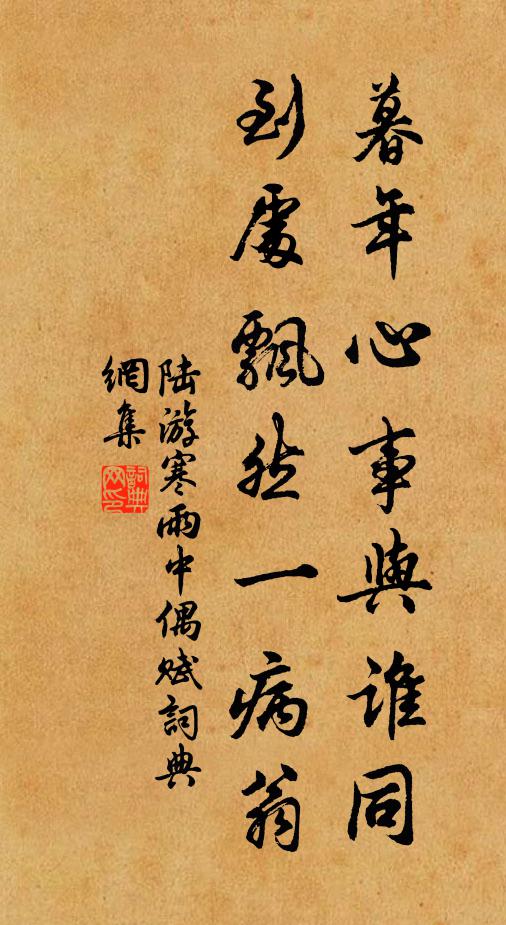 暮年心事與誰同
到處飄然一病翁
陸游寒雨中偶賦詞典
網集
詞典
网印